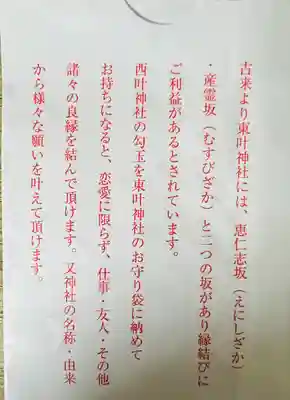 古来より東叶神社には、恵仁志坂（えにしざか）
・産霊坂（むすびざか）と二つの坂があり縁結びに
ご利益があるとされています。
西叶神社の勾玉を東叶神社のお守り袋に納めて
お持ちになると、恋愛に限らず、仕事・友人・その他
諸々の良縁を結んで頂けます。又神社の名称・由来
から様々な願いを叶えて頂けます。